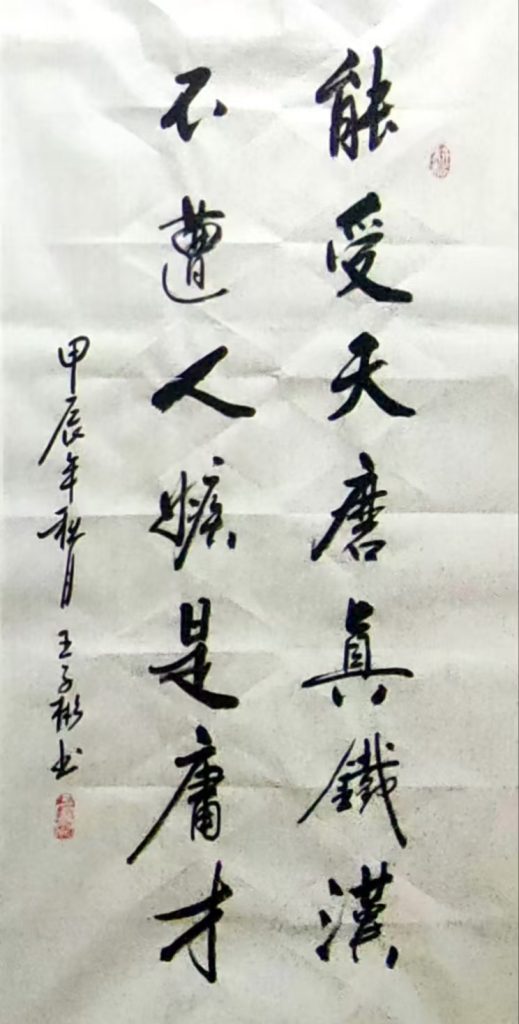 能受天磨真鐵漢
不遭人嫉是庸才
甲辰年秋月 王子彬书